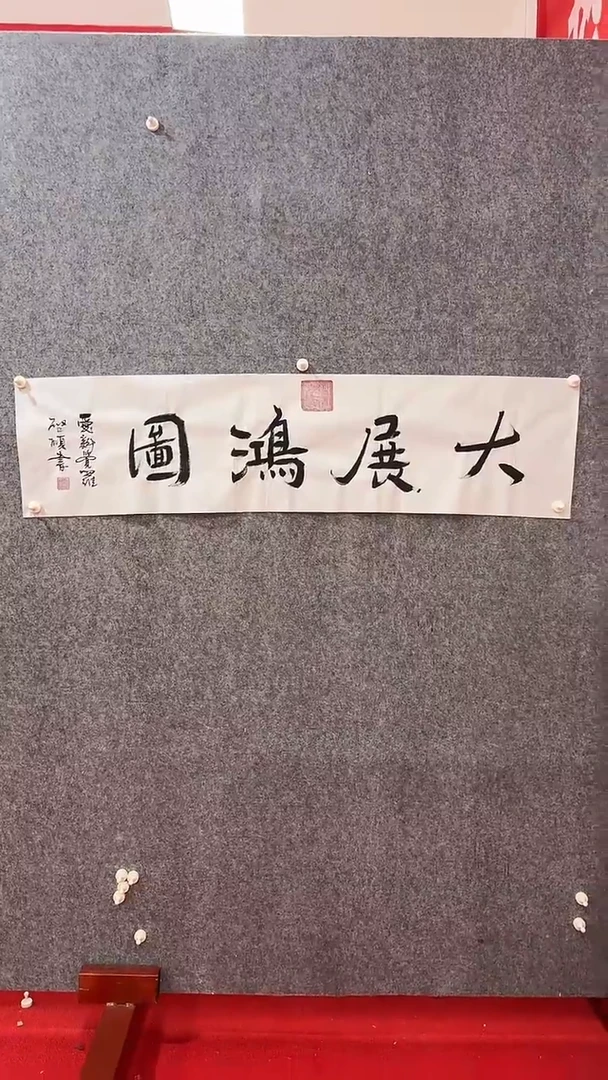 大展鴻圖
愛新覺羅
啓碩書